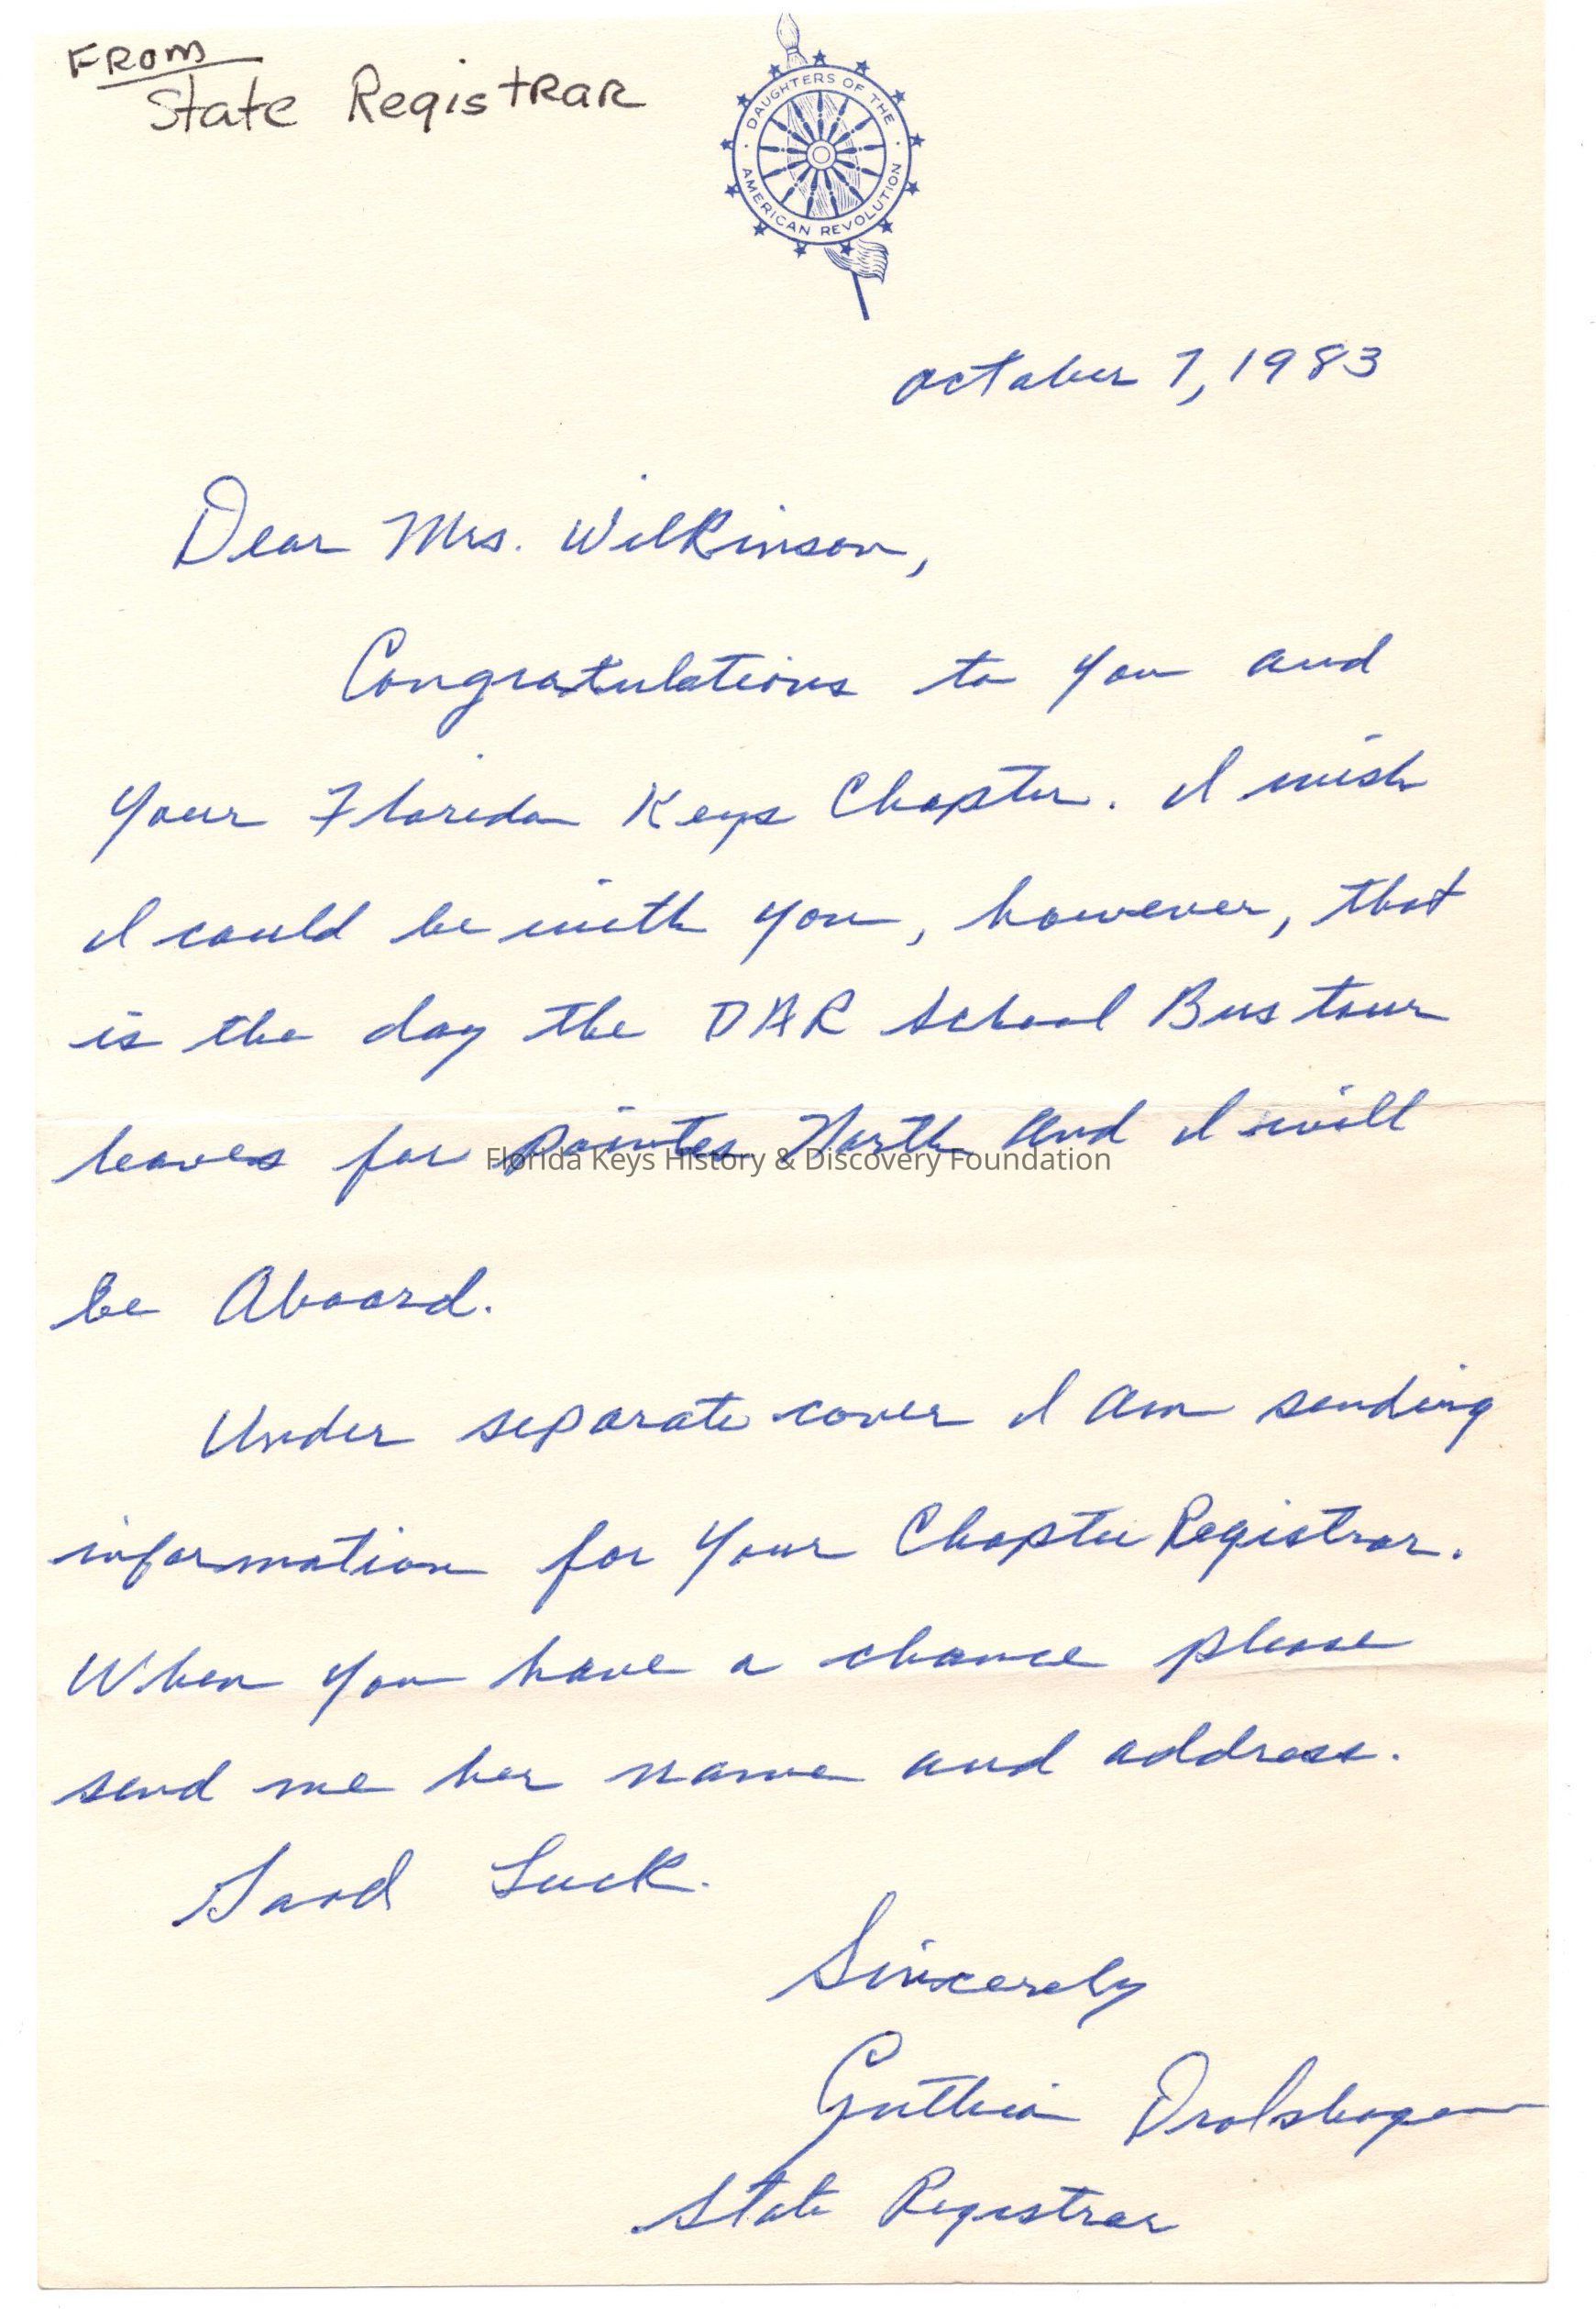 FROM
State Registrar
DAUGHTERS OF THE
AMERICAN REVOLUTION
October 7, 1983
Dear Mrs. Wilkinson,
Congratulations to you and
your Florida Keys Chapter. I wish
I could be with you, however, that
is the day the DAR School Bus tour
leaves for points North and I will
Florida Keys History & Discovery Foundation
be Aboard.
Under separate cover I am sending
information for your Chapter Registrar.
When you have a chance please
send me her name and address.
Good Luck.
Sincerely
Cynthia Drolshagen
State Registrar